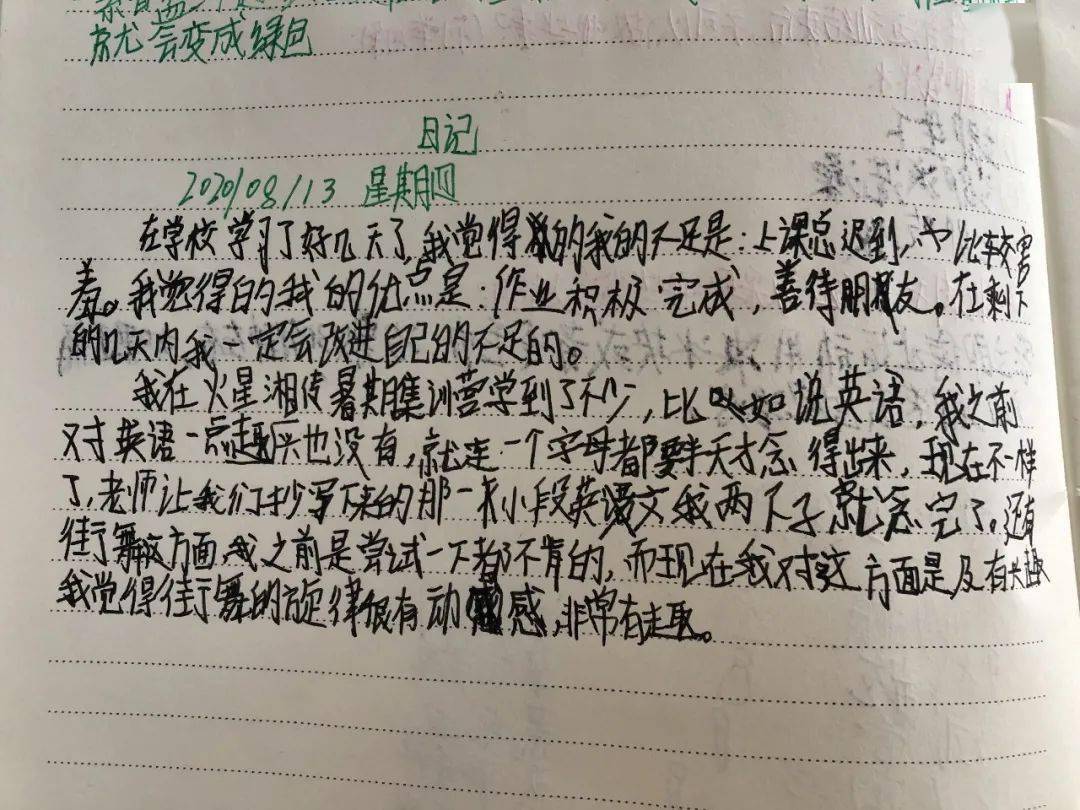 就会变成绿色
日记
2020/08/13 星期四
在学校学习了好几天了,我觉得我的不足是:上课总迟到,也比较害
羞。我觉得的我的优点是:作业积极完成,善待朋友。在剩下
的几天内我一定会改进自己的不足的。
我在火星湘传暑期集训营学到了不少,比如说英语,我之前
对英语一点趣兴也没有,就连一个字母都要半天才念得出来,现在不一样
了,老师让我们抄写下来的那一小段英文我两下子就念完了。还有
街舞这方面,我之前是尝试一下都不肯的,而现在我对这方面是及有兴趣
我觉得街舞的旋律很有动感,非常有趣。